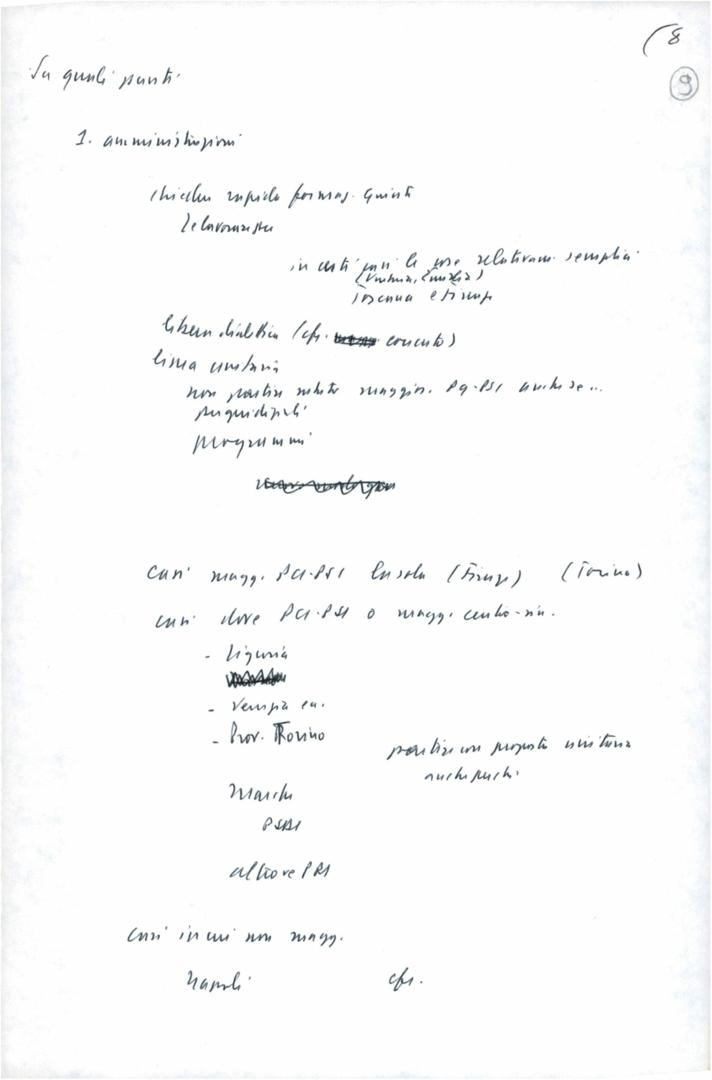 (8
9
Su quali punti
1. amministrazioni
chiedere rapida formaz. Giunte
in certi casi le cose relativam. semplici
(Umbria, Emilia)
Toscana e Firenze
libera dialettica (cfr. concreto)
linea unitaria
non partire subito maggior. PCI-PSI anche se...
programmi
casi magg. PCI-PSI (Firenze) (Torino)
casi dove PCI-PSI o magg. centro-sin.
- Liguria
- Venezia
- Prov. Torino
partire con proposta unitaria
anche perché
Marche
PSDI
altrove PRI
casi in cui non magg.
Napoli cfr.